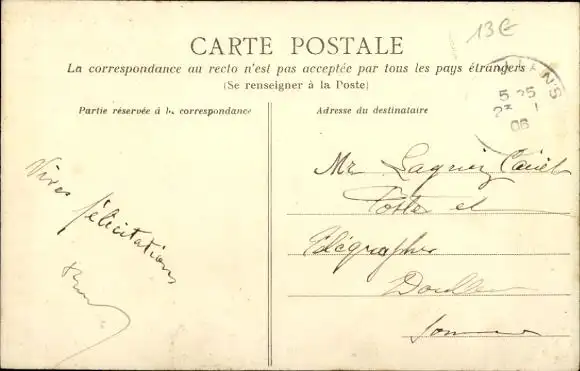 13€
CARTE POSTALE
La correspondance au recto n'est pas acceptée par tous les pays étrangers
(Se renseigner à la Poste)
Partie réservée à la correspondance
Adresse du destinataire
5 25
06
Vives
félicitations
Mr
Poste et
Télégraphes
Doullens
Somme